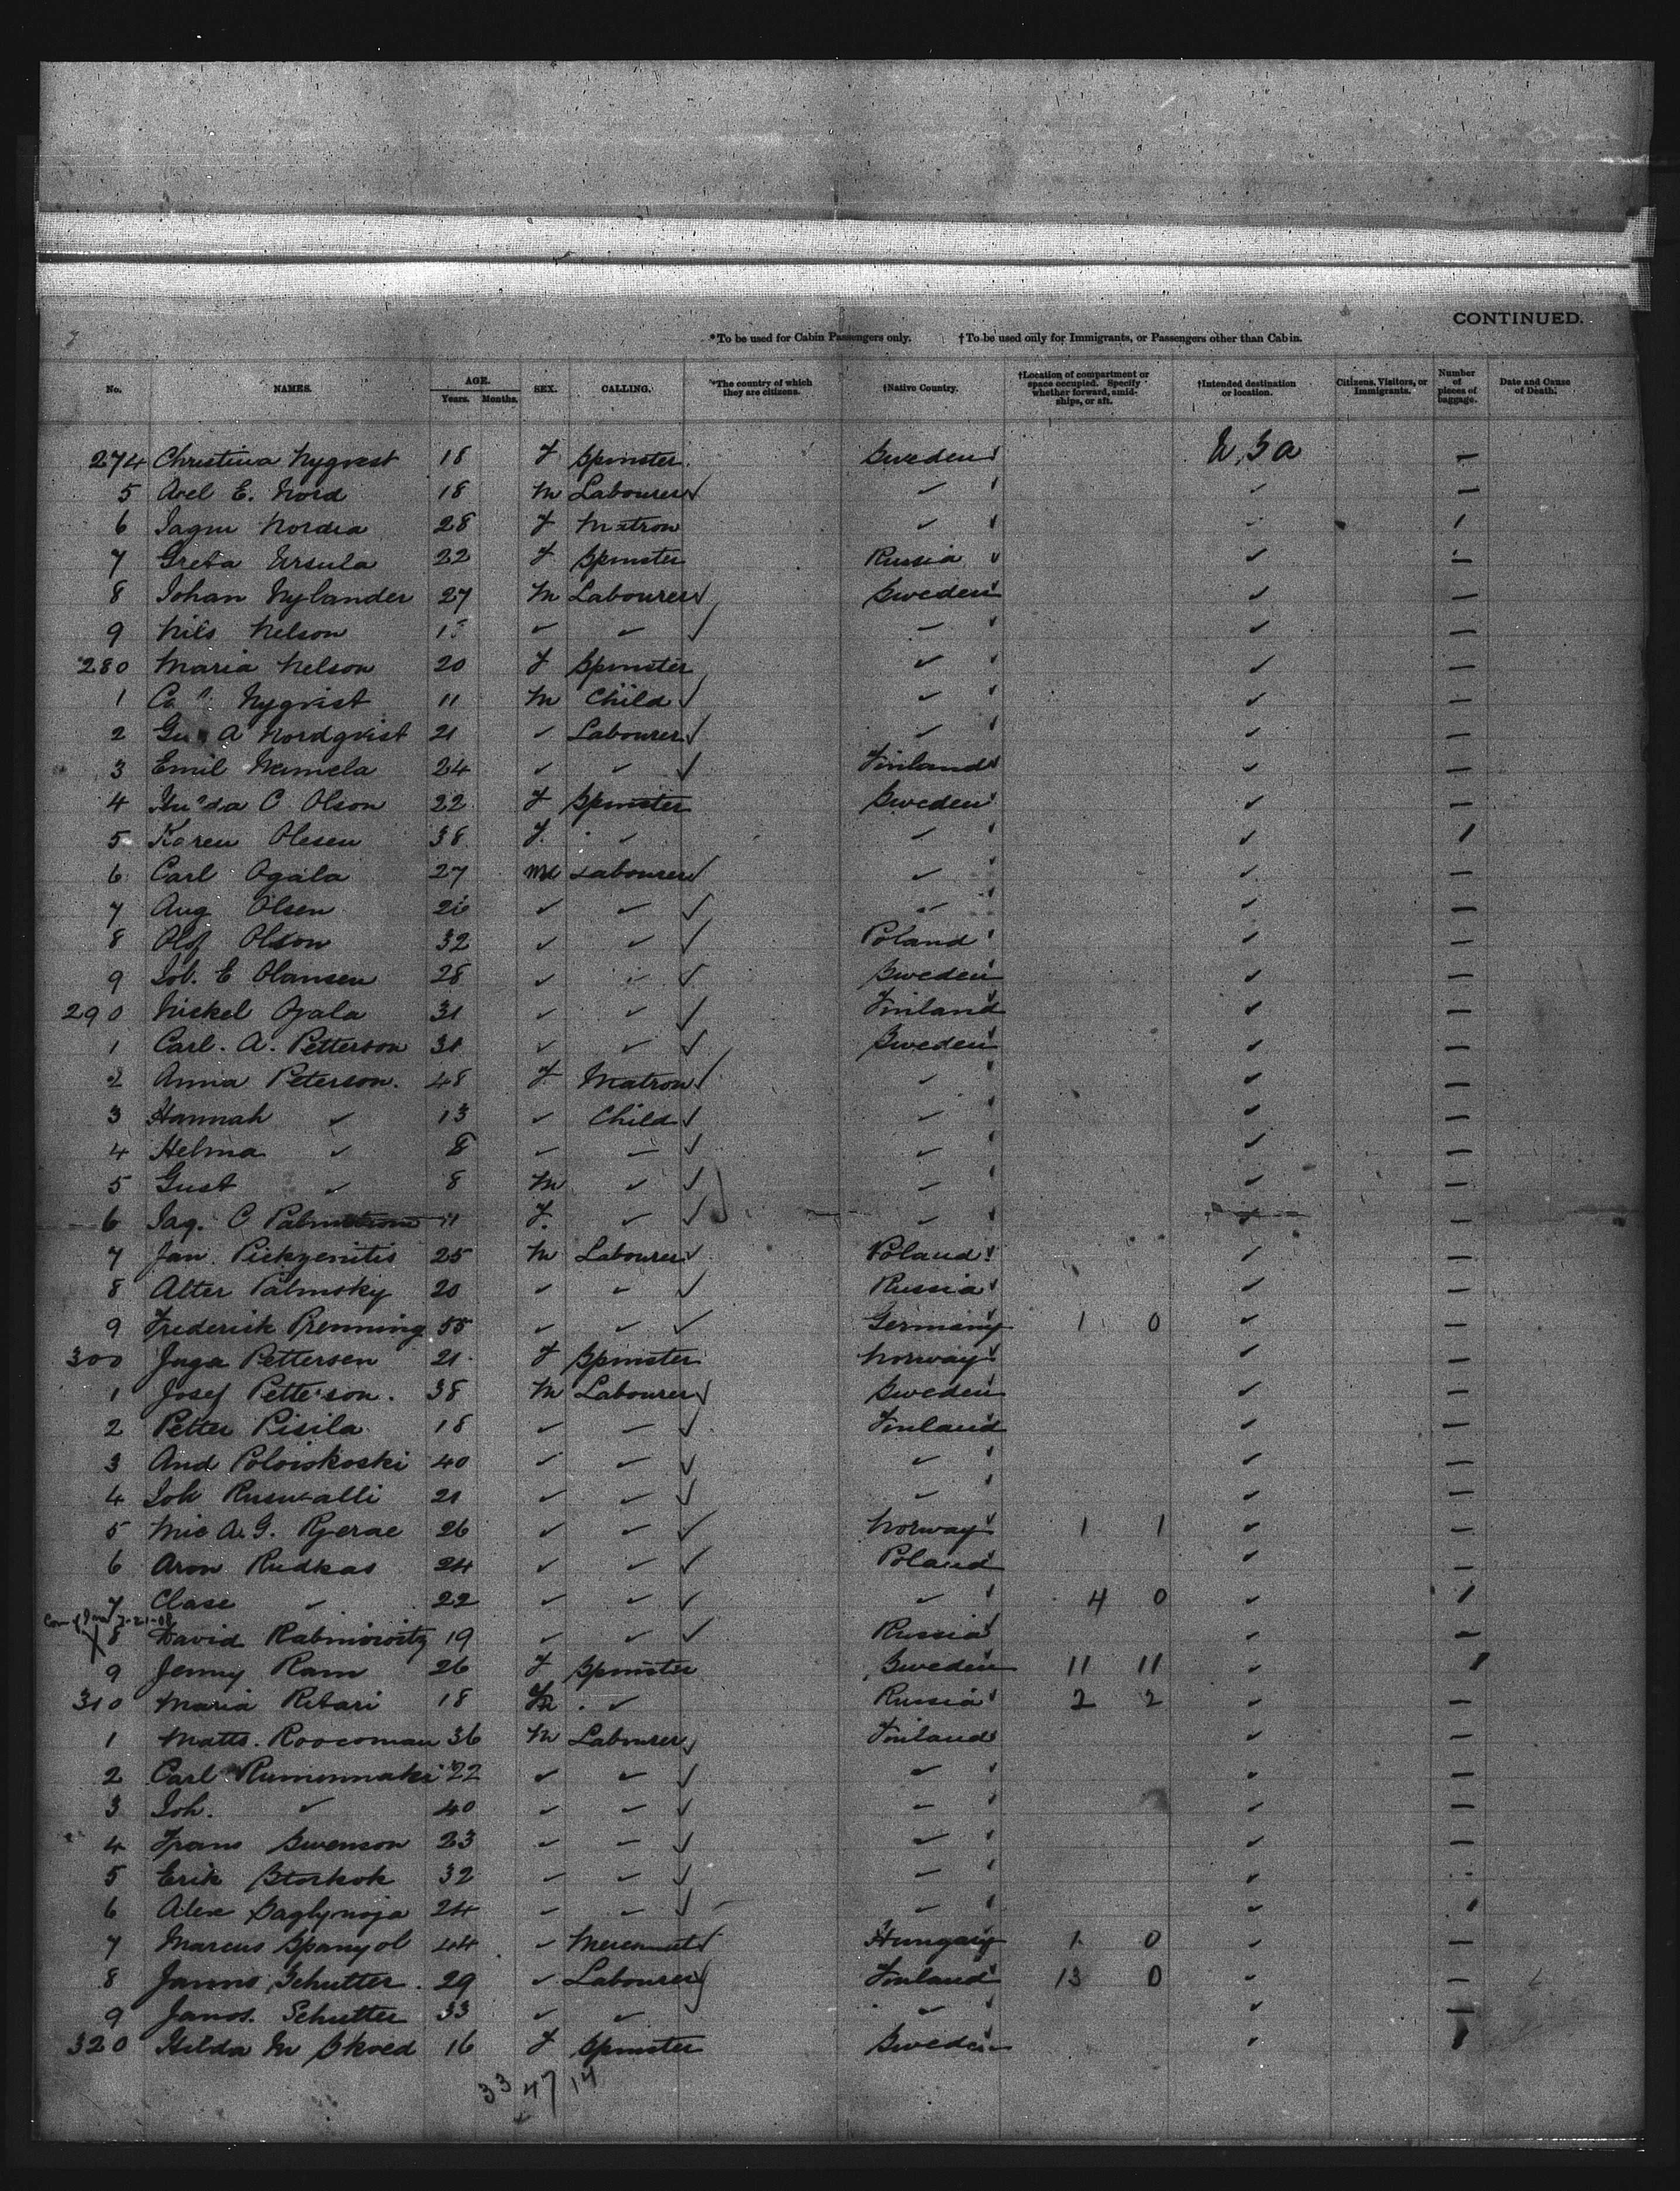 CONTINUED.
*To be used for Cabin Passengers only. †To be used only for Immigrants, or Passengers other than Cabin.
No. NAMES. AGE. Years. Months. SEX. CALLING. *The country of which they are citizens. †Native Country. †Location of compartment or space occupied. Specify whether forward, amidships, or aft. †Intended destination or location. Citizens, Visitors, or Immigrants. Number of pieces of baggage. Date and Cause of Death.
274 Christina Nyqvest 18 F Spinster Sweden U,S a —
5 Axel E. Nord 18 M Labourer ✓ ✓ ✓ —
6 Nordra 28 F Matron ✓ 1
7 Greta Ursula 22 F Spinster Russia ✓ —
8 Johan Nylander 27 M Labourer ✓ Sweden ✓ —
9 Nils Nelson ✓ ✓ ✓ ✓ ✓ —
280 Maria Nelson 20 F Spinster ✓ ✓ —
1 Nyqvist 11 M Child ✓ ✓ ✓ —
2 A Nordqvist 21 ✓ Labourer ✓ ✓ ✓ —
3 Emil Niemela 24 ✓ ✓ ✓ Finland ✓ —
4 C Olson 22 F Spinster Sweden ✓ —
5 Karen Olesen 38 F. ✓ ✓ ✓ 1
6 Carl Ogala 27 M Labourer ✓ ✓ ✓ —
7 Aug Olsen 26 ✓ ✓ ✓ ✓ ✓ —
8 Olof Olson 32 ✓ ✓ ✓ Poland ✓ —
9 Joh. E Olansen 28 ✓ ✓ ✓ Sweden ✓ —
290 Nickel Ojala 31 ✓ ✓ ✓ Finland ✓ —
1 Carl. A. Petterson 31 ✓ ✓ ✓ Sweden ✓ —
2 Anna Peterson. 48 F Matron ✓ ✓ ✓ —
3 Hannah ✓ 13 ✓ Child ✓ ✓ ✓ —
4 Helma ✓ 8 ✓ ✓ ✓ ✓ ✓ —
5 Gust ✓ 8 M ✓ ✓ ✓ ✓ —
6 C Palmstrom 11 F. ✓ ✓ ✓ ✓ —
7 Jan. Pickzenitis 25 M Labourer ✓ Poland ✓ —
8 Alter Palmsky 20 ✓ ✓ ✓ Russia ✓ —
9 Frederick Prenning 55 ✓ ✓ ✓ Germany 1 0 ✓ —
300 Inga Pettersen 21 F Spinster Norway ✓ —
1 Josef Petterson. 38 M Labourer ✓ Sweden ✓ —
2 Petter Pisila 18 ✓ ✓ ✓ Finland ✓ —
3 And Poloiskoski 40 ✓ ✓ ✓ ✓ ✓ —
4 Joh 21 ✓ ✓ ✓ ✓ ✓ —
5 A. G. 26 ✓ ✓ ✓ Norway 1 1 ✓ —
6 Aron Rudkas 24 ✓ ✓ ✓ Poland ✓ —
7 Clase ✓ 22 ✓ ✓ ✓ ✓ 4 0 ✓ 1
7-21-08
X 8 David Rabinowitz 19 ✓ ✓ ✓ Russia ✓ —
9 Jenny Ram 26 F Spinster Sweden 11 11 ✓ 1
310 Maria Ritari 18 F ✓ Russia 2 2 ✓ —
1 Matts. Roosoman 36 M Labourer ✓ Finland ✓ —
2 Carl Rumennaki 22 ✓ ✓ ✓ ✓ ✓ —
3 Joh. ✓ 40 ✓ ✓ ✓ ✓ ✓ —
4 Frans Swenson 23 ✓ ✓ ✓ ✓ ✓ —
5 Erik Storkok 32 ✓ ✓ ✓ ✓ ✓ —
6 Alex 24 ✓ ✓ ✓ ✓ ✓ 1
7 Marcus Spanyol 44 ✓ Merchant ✓ Hungary 1 0 ✓ —
8 Janno Schutter 29 ✓ Labourer Finland 13 0 ✓ —
9 Janos. Schutter 33 ✓ ✓ ✓ ✓ —
320 Hilda M Skoed 16 F Spinster Sweden ✓ 1
33 47 14